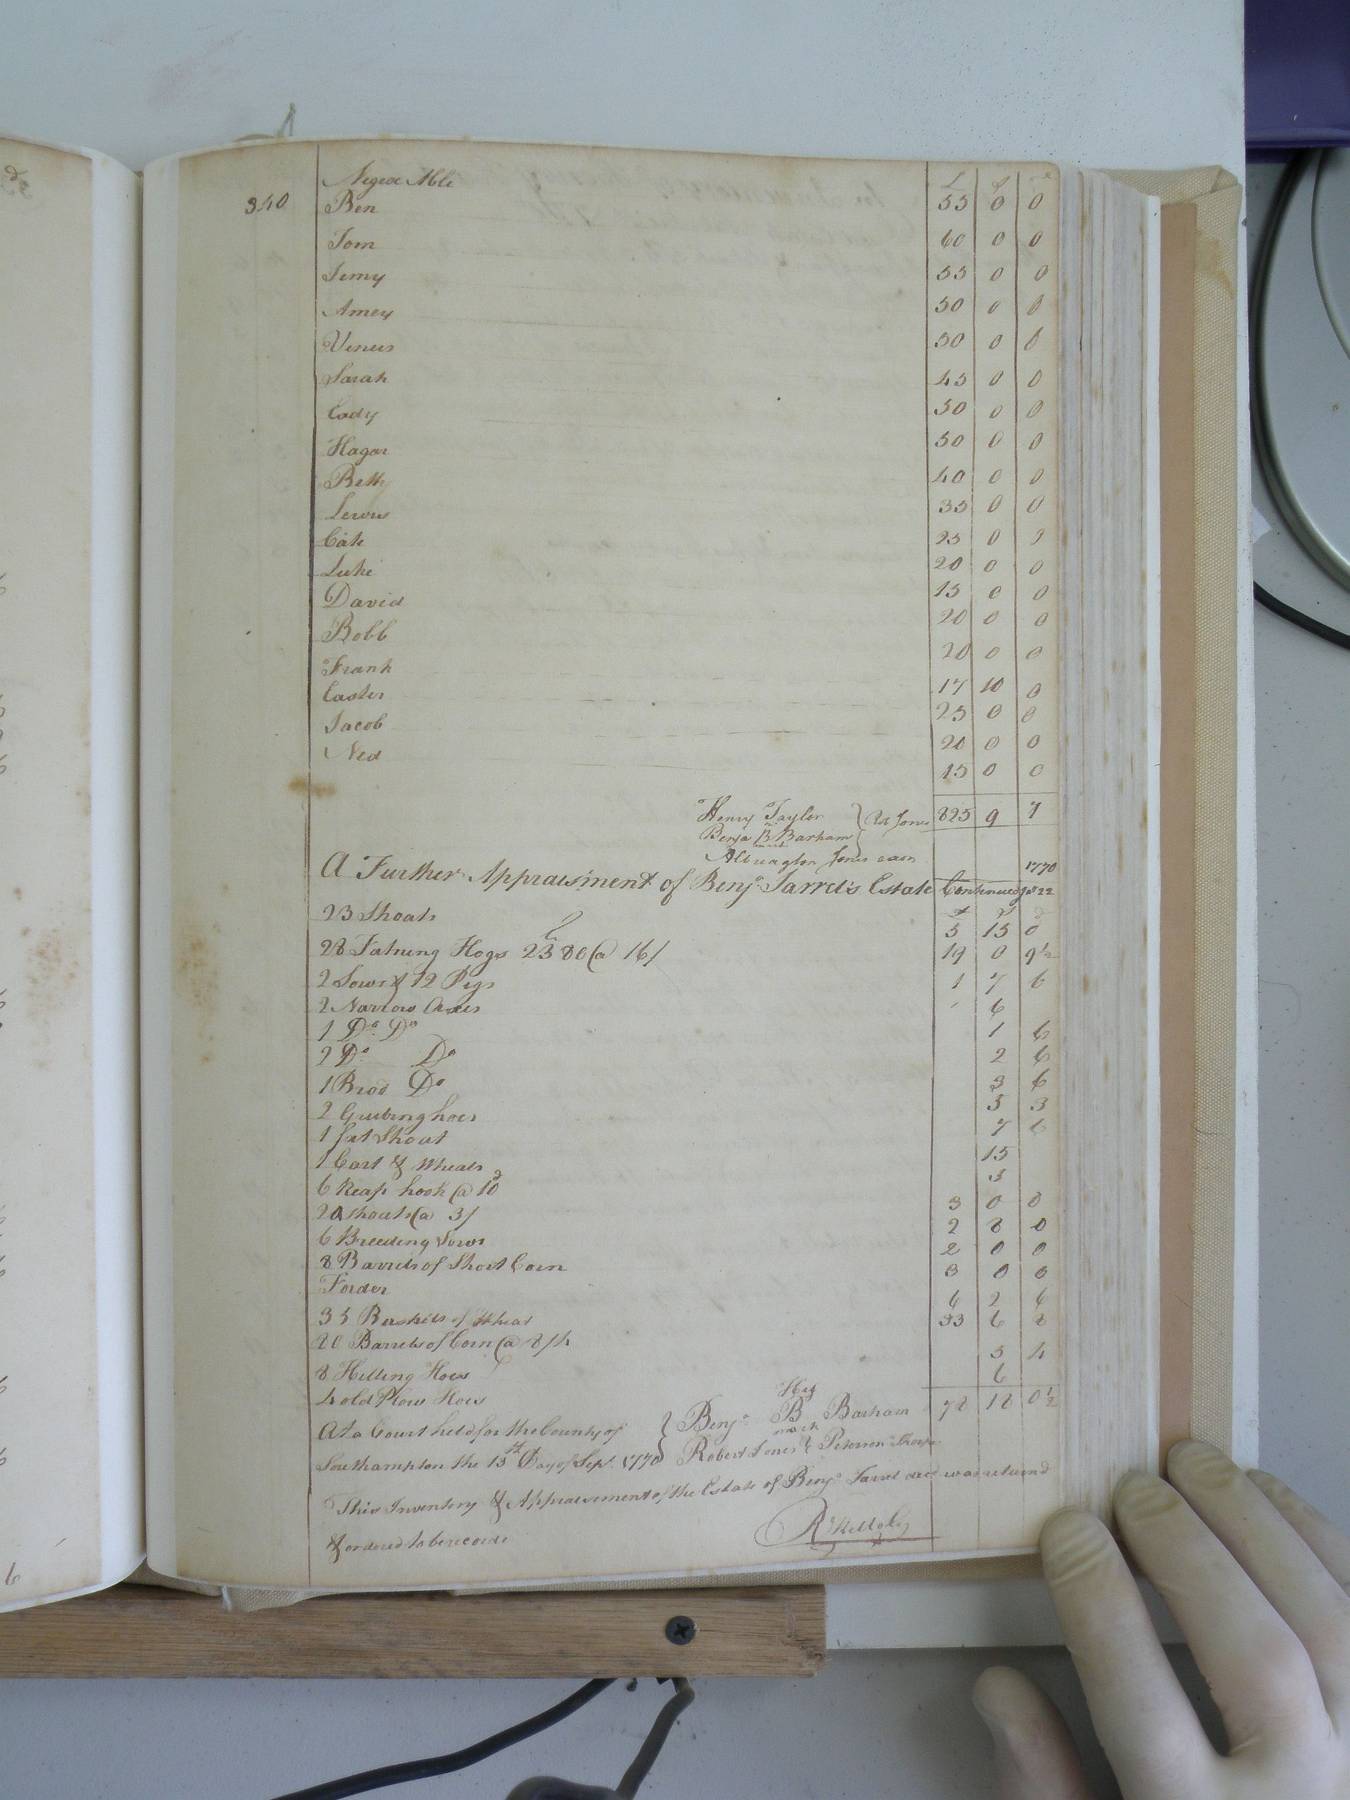 340
Negroe Able £ S D
Ben 55 0 0
Tom 60 0 0
Jemy 55 0 0
Amey 50 0 0
Venus 50 0 0
Sarah 45 0 0
Cady 50 0 0
Hagar 50 0 0
Beth 40 0 0
Lewis 35 0 0
Cate 25 0 0
Luke 20 0 0
David 15 0 0
Bobb 20 0 0
Frank 20 0 0
Easter 17 10 0
Jacob 25 0 0
Ned 20 0 0
15 0 0
Henry Taylor } Rt Jones 825 9 7
Benja B Barham
Albrington Jones
A Further Appraisment of Benja Jarrel's Estate Continued 1770 22
23 Shoats 5 15 0
28 Fatning Hogs 2380 @ 16/ 19 0 9½
2 Sows & 12 Pigs 1 7 6
2 Narrow Axes 6
1 Do Do 1 6
2 Do Do 2 6
1 Brod Do 3 6
2 Grubing hoes 5 3
1 fat Shoat 7 6
1 Cart & Wheals 15
6 Reap hook @ 10d 5
20 shoats @ 3/ 3 0 0
6 Breeding Sows 2 8 0
8 Barrels of Short Corn 2 0 0
Foder 3 0 0
35 Bushels of Wheat 6 2 6
80 Barrels of Corn @ 8/4 33 6 8
8 Hilling Hoes 5 4
4 old Plow Hoes 6
78 18 0½
At a Court held for the County of } Benja B Barham
His mark
Southampton the 13th Day of Sepr. 1770 Robert Jones & Peterson Thorp
This Inventory & Appraisement of the Estate of Benja Jarrel decd was returnd
& ordered to be recorded
R Kelloby